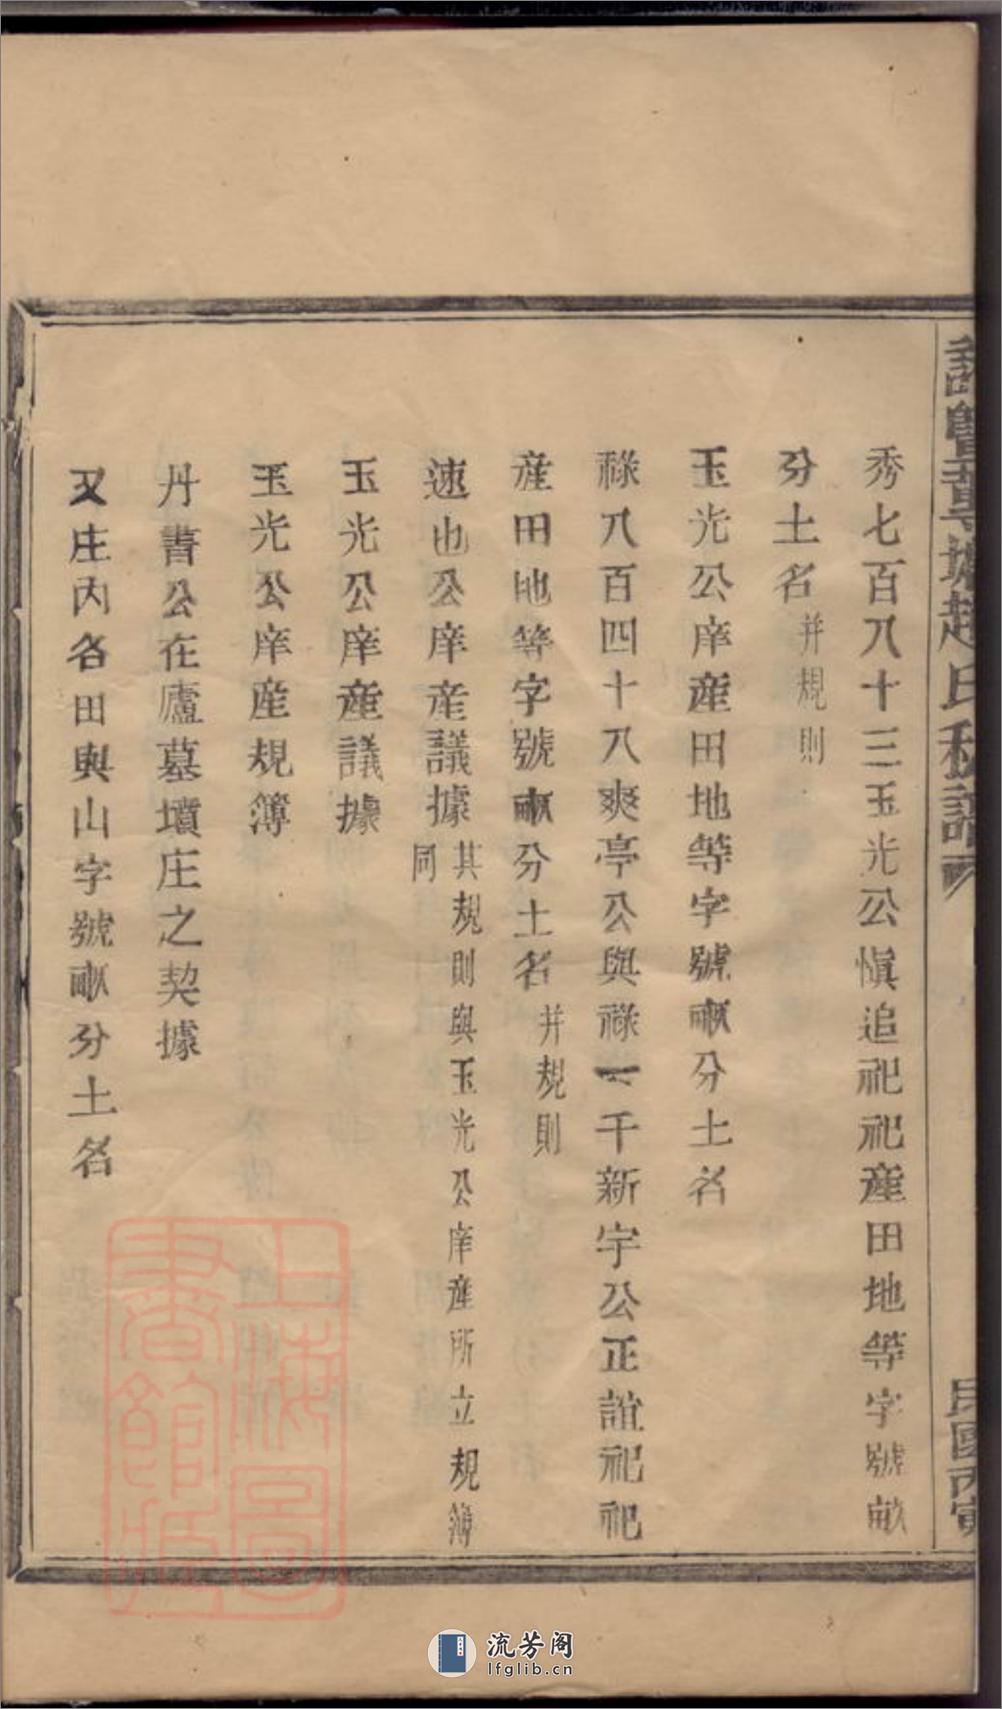 秀七百八十三玉光公愼追祀祀產田地等字號畝
分土名并規則
玉光公庠產田地等字號畝分土名
祿八百四十八爽亭公與祿一千新宇公正誼祀祀
產田地等字號畝分土名并規則
速也公庠產議據其規則與玉光公庠產所立規簿同
玉光公庠產議據
玉光公庠產規簿
丹書公在廬墓墳庄之契據
又庄內各田與山字號畝分土名
民國丙寅
上海圖書館藏
流芳阁
lfglib.cn